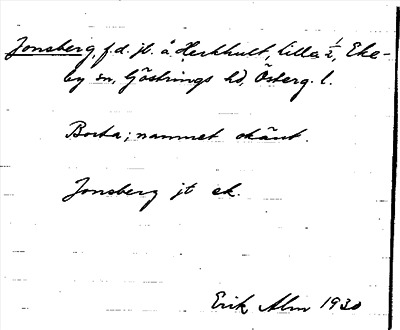 Jonsberg, f.d. jt. å Herkhult, lilla 1/2, Eke-
by sn, Göstrings hd, Österg. l.
Borta; namnet okänt.
Jonsberg jt ek.
Erik Alm 1930